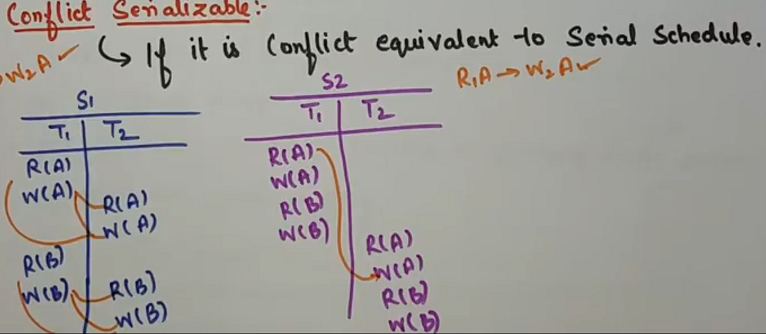 Conflict Serializable:-
W₂A ✓ ↳ If it is Conflict equivalent to Serial Schedule.
R₁A → W₂A ✓
S1
T₁ T₂
R(A)
W(A)
R(A)
W(A)
R(B)
W(B)
R(B)
W(B)
S2
T₁ T₂
R(A)
W(A)
R(B)
W(B)
R(A)
W(A)
R(B)
W(B)